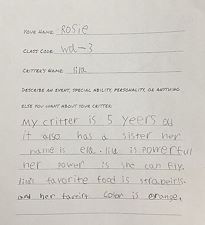 YOUR NAME: Rosie
CLASS CODE: wd-3
CRITTER'S NAME: lila
DESCRIBE AN EVENT, SPECIAL ABILITY, PERSONALITY, OR ANYTHING
ELSE YOU WANT ABOUT YOUR CRITTER:
My critter is 5 years old
it also has a sister her
name is ela. lila is powerful
her power is she can fly.
favorite food is
and her color is orange.